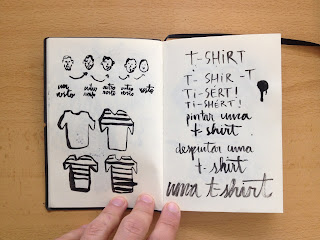 um rosto outro rosto outro rosto outro rosto rosto
T-SHIRT
T-SHIR-T
TI-SÉRT!
TI-SHÉRT!
pintar uma
t-shirt.
despintar uma
t-shirt
uma t-shirt